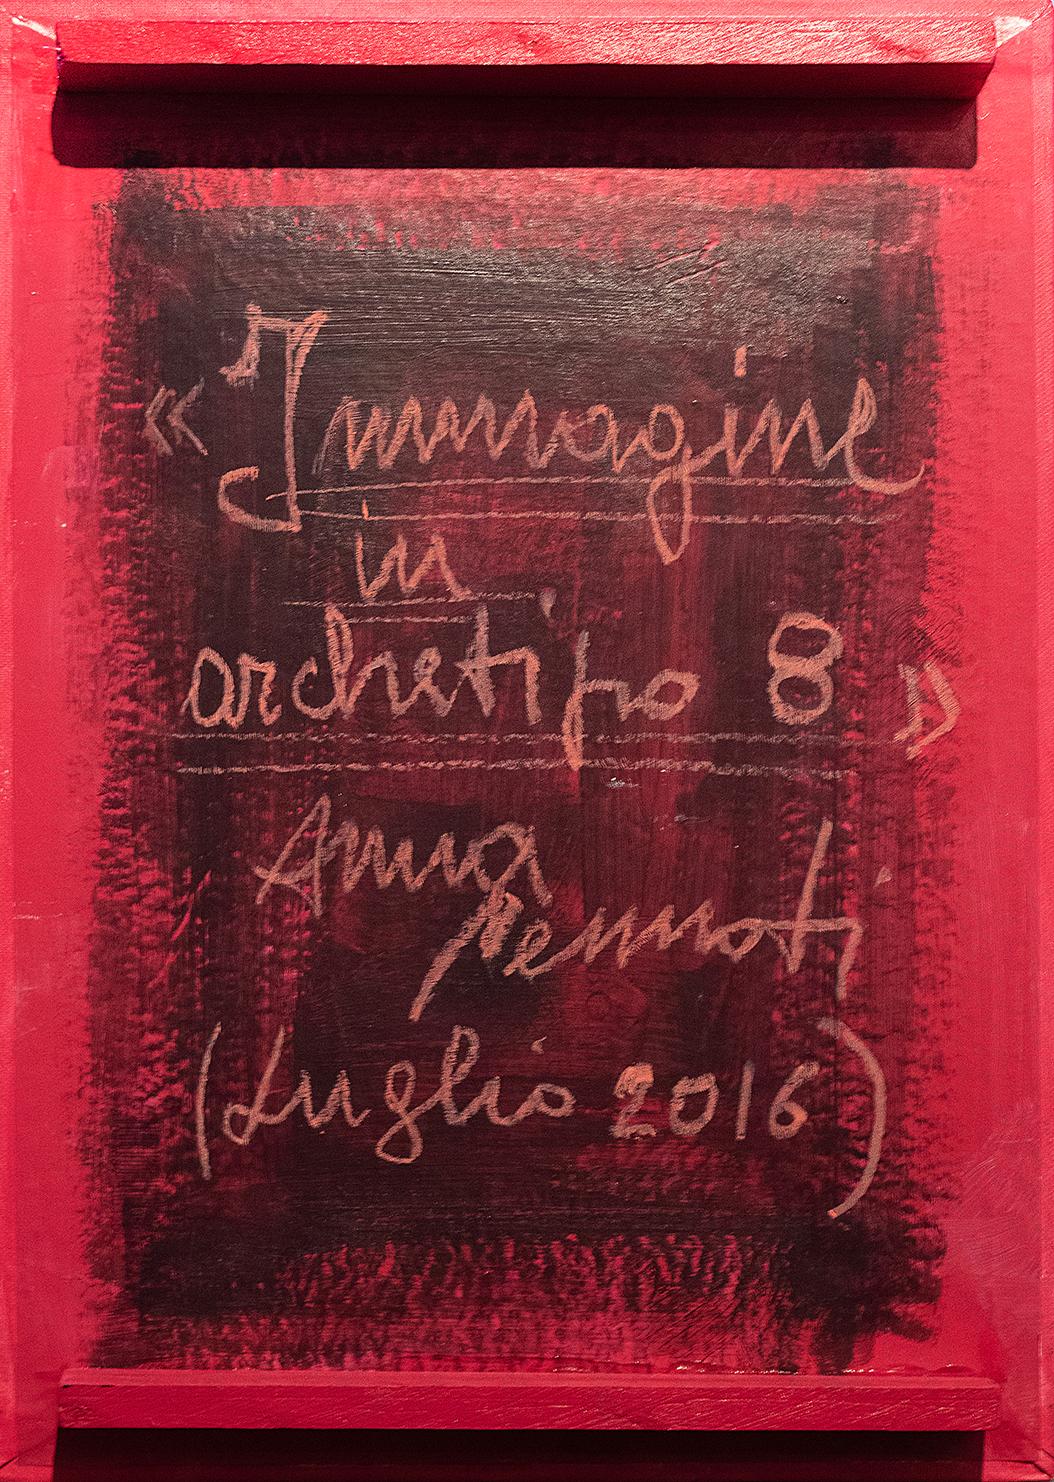 « Immagine
in
archetipo 8 »
Anna
Pennati
(Luglio 2016)